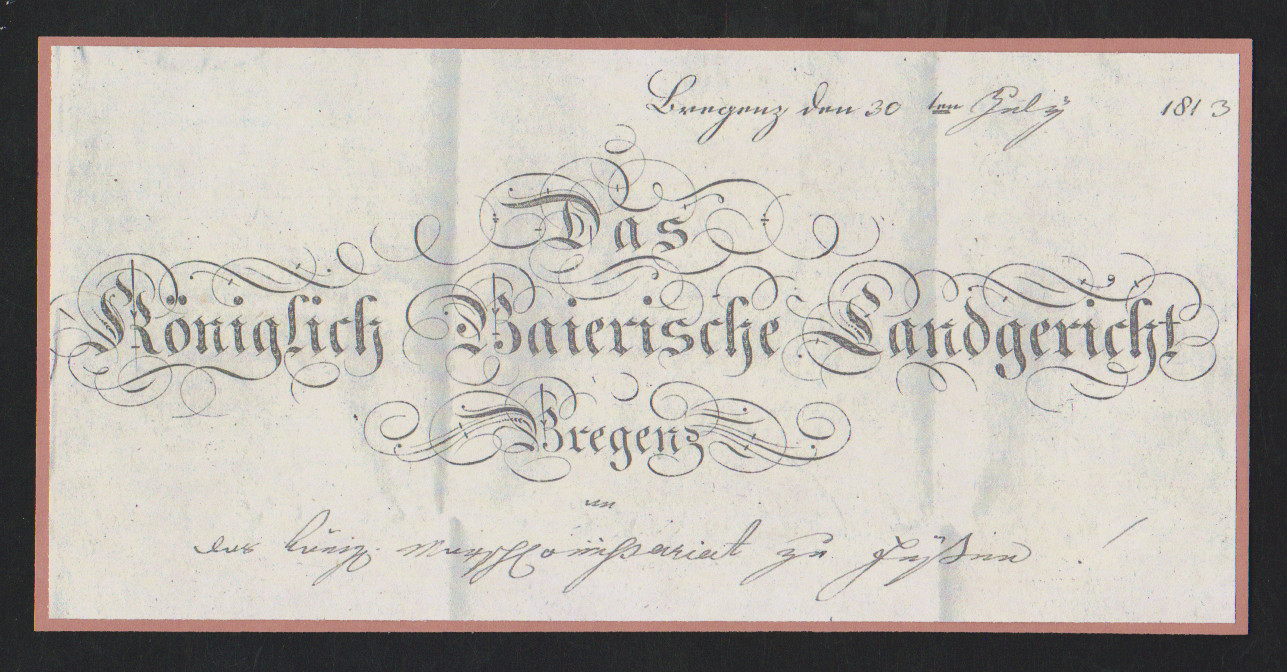 Bregenz den 30 ten July 1813
Das
Königlich Baierische Landgericht
Bregenz
an
das königl. Marschcom̅issariat zu Füßen !